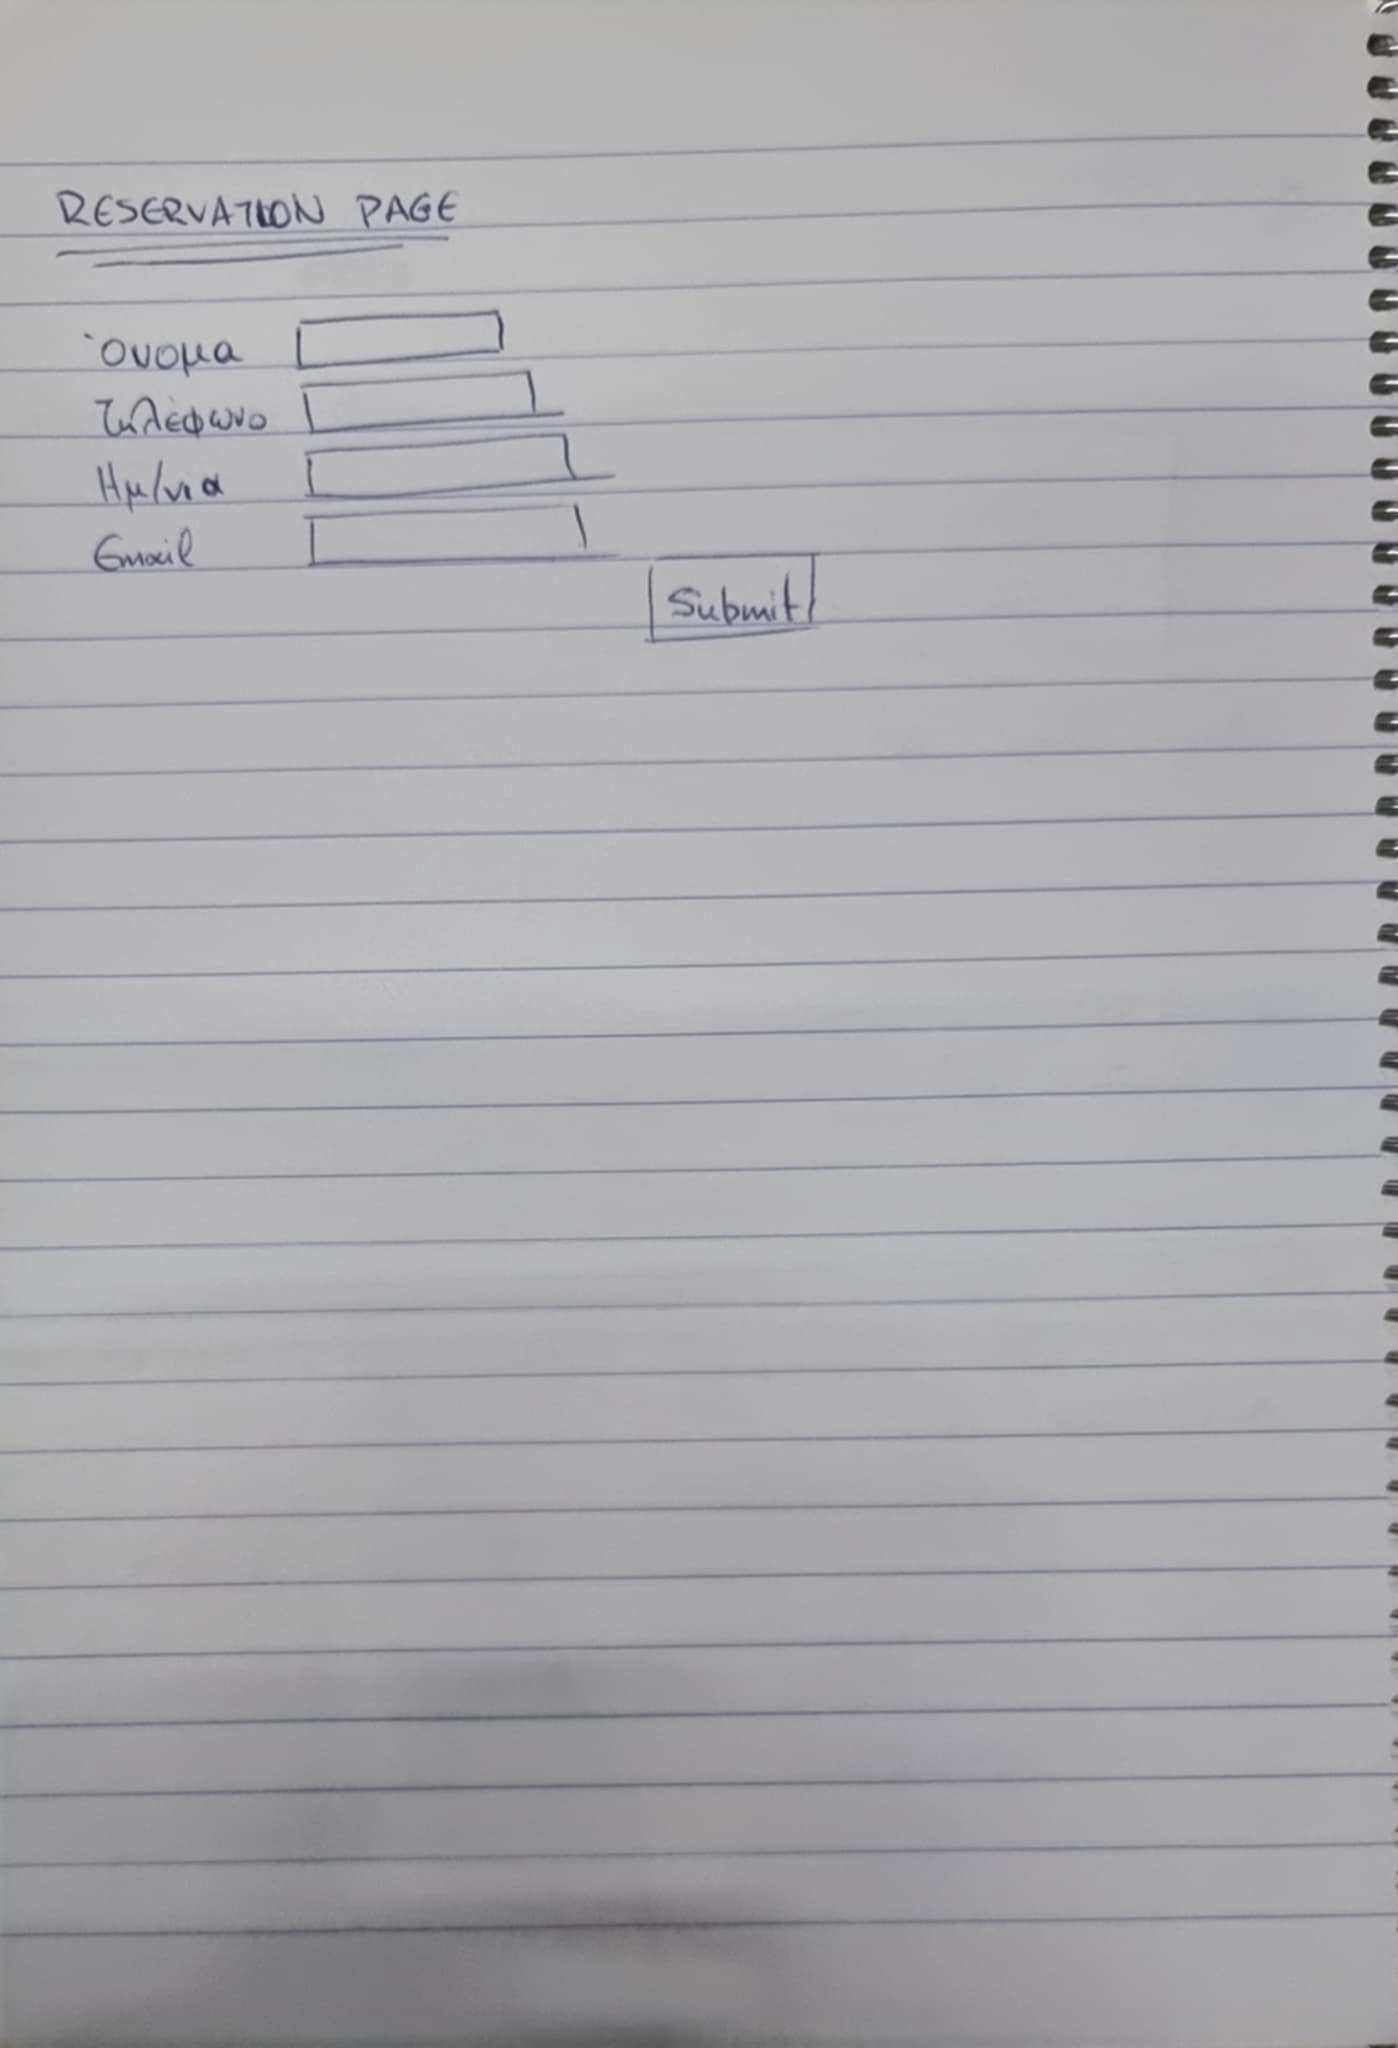 RESERVATION PAGE
Όνομα
Τηλέφωνο
Ημ/νια
Email
Submit